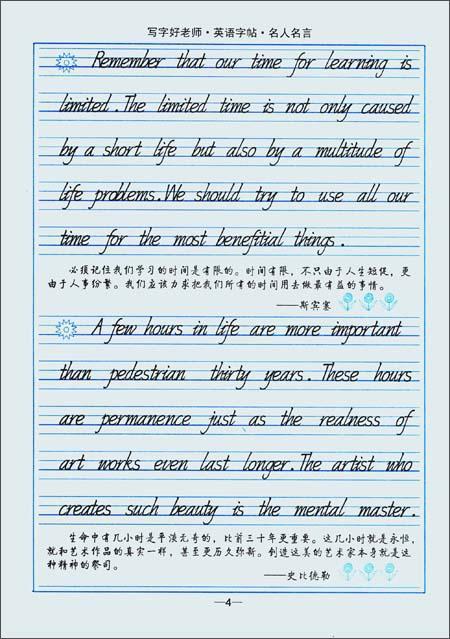 写字好老师·英语字帖·名人名言
Remember that our time for learning is
limited.The limited time is not only caused
by a short life but also by a multitude of
life problems.We should try to use all our
time for the most benefitial things.
必须记住我们学习的时间是有限的。时间有限，不只由于人生短促，更
由于人事纷繁。我们应该力求把我们所有的时间用去做最有益的事情。
——斯宾塞
A few hours in life are more important
than pedestrian thirty years.These hours
are permanence just as the realness of
art works even last longer.The artist who
creates such beauty is the mental master.
生命中有几小时是平淡无奇的，比前三十年更重要。这几小时就是永恒，
就和艺术作品的真实一样，甚至更历久弥新。创造这美的艺术家本身就是这
种精神的祭司。
——史比德勒
—4—